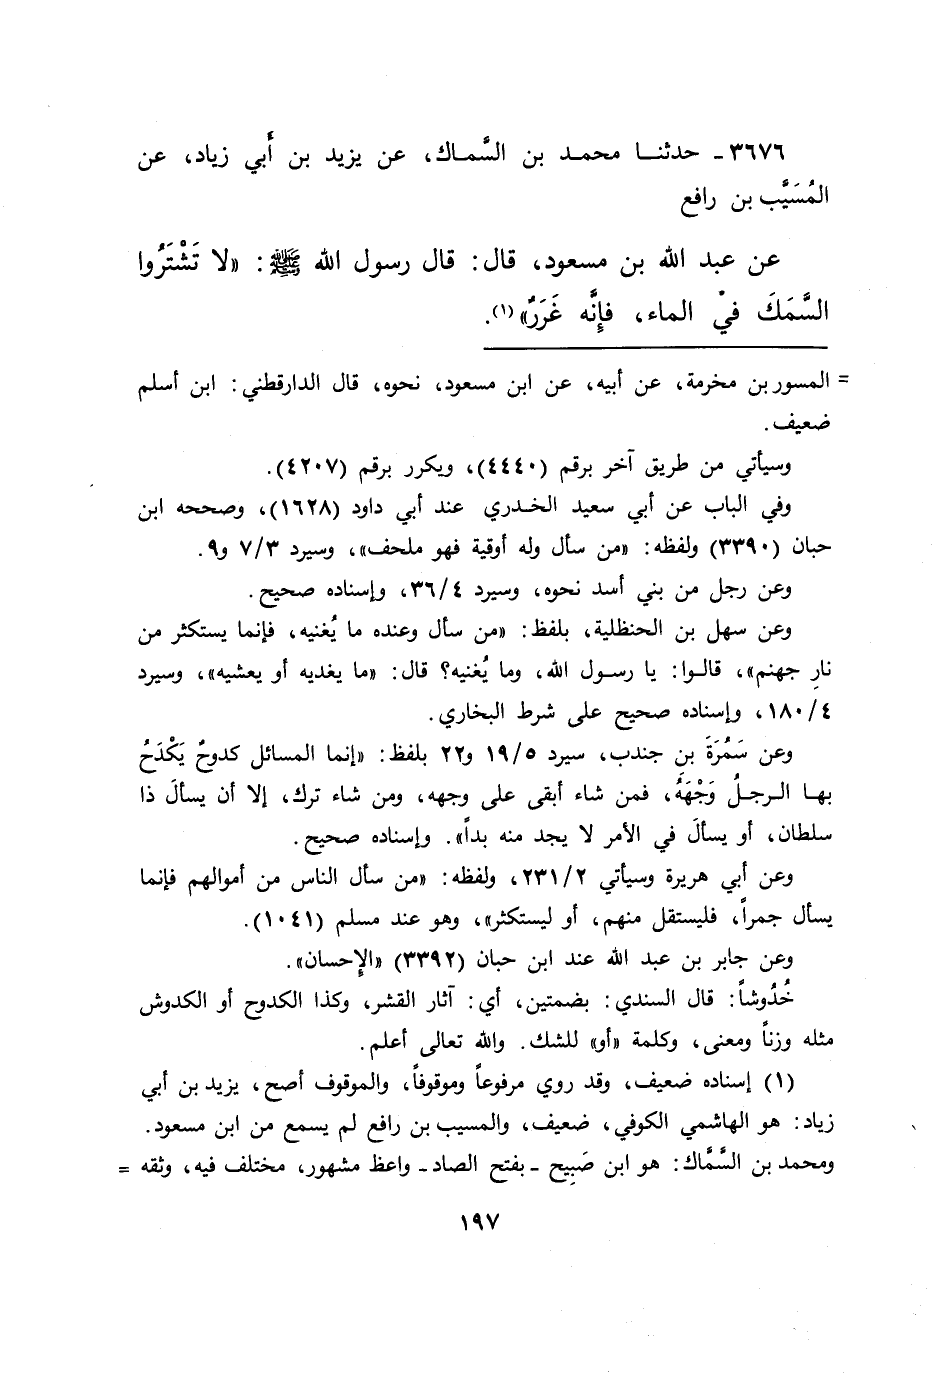 ٣٦٧٦ـ حدثنـا محمد بن السَّماك، عن يزيد بن أَبي زياد، عن
المُسَيَّب بن رافع
عن عبد الله بن مسعود، قال: قال رسول الله ﷺ: «لا تَشْتَرُوا
السَّمَكَ في الماء، فإِنَّه غَرَرٌ»(١).
= المسور بن مخرمة، عن أبيه، عن ابن مسعود، نحوه، قال الدارقطني: ابن أسلم
ضعيف.
وسيأتي من طريق آخر برقم (٤٤٤٠)، ويكرر برقم (٤٢٠٧).
وفي الباب عن أبي سعيد الخـدري عند أبي داود (١٦٢٨)، وصححه ابن
حبان (٣٣٩٠) ولفظه: «من سأل وله أوقية فهو ملحف»، وسيرد ٧/٣ و٩.
وعن رجل من بني أسد نحوه، وسيرد ٣٦/٤، وإسناده صحيح.
وعن سهل بن الحنظلية، بلفظ: «من سأل وعنده ما يُغنيه، فإنما يستكثر من
نارِ جهنم»، قالـوا: يا رسـول الله، وما يُغنيه؟ قال: «ما يغديه أو يعشيه»، وسيرد
١٨٠/٤، وإسناده صحيح على شرط البخاري.
وعن سَمُرَةَ بن جندب، سيرد ١٩/٥ و٢٢ بلفظ: «إنما المسائل كدوحٌ يَكْدَحُ
بهـا الـرجـلُ وَجْهَهُ، فمن شاء أبقى على وجهه، ومن شاء ترك، إلا أن يسألَ ذا
سلطان، أو يسألَ في الأمر لا يجد منه بداً». وإسناده صحيح.
وعن أبي هريرة وسيأتي ٢٣١/٢، ولفظه: «من سأل الناس من أموالهم فإنما
يسأل جمراً، فليستقل منهم، أو ليستكثر»، وهو عند مسلم (١٠٤١).
وعن جابر بن عبد الله عند ابن حبان (٣٣٩٢) «الإحسان».
خُدُوشاً: قال السندي: بضمتين، أي: آثار القشر، وكذا الكدوح أو الكدوش
مثله وزناً ومعنى، وكلمة «أو» للشك. والله تعالى أعلم.
(١) إسناده ضعيف، وقد روي مرفوعاً وموقوفاً، والموقوف أصح، يزيد بن أبي
زياد: هو الهاشمي الكوفي، ضعيف، والمسيب بن رافع لم يسمع من ابن مسعود.
ومحمد بن السَّمَّاك: هو ابن صَبِيح ـ بفتح الصاد ـ واعظ مشهور، مختلف فيه، وثقه =
١٩٧